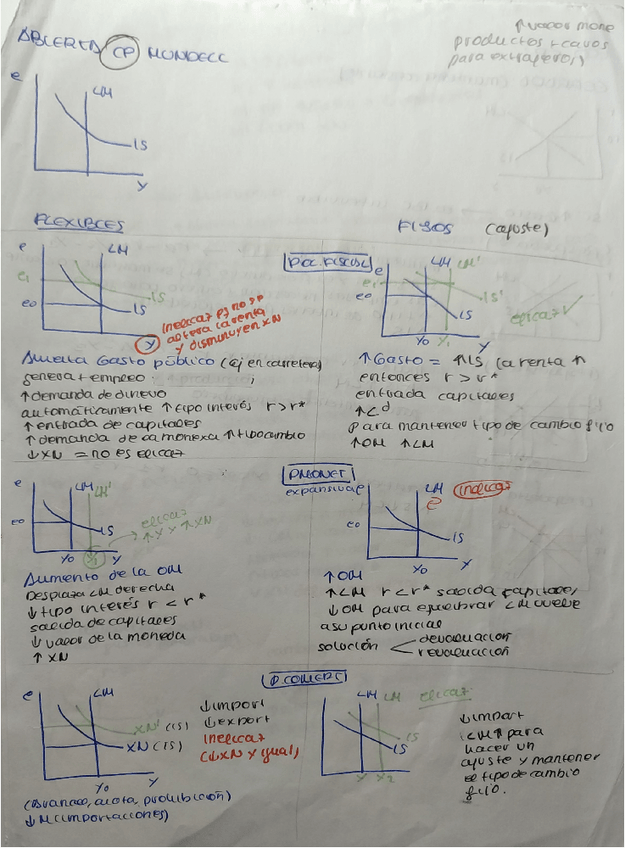 ABIERTA CP MUNDELL
↑ valor mone
productos + caros
para extranjeros
e
LM
IS
Y
FLEXIBLES
FIJOS (ajuste)
POL. FISCAL
e
LM
e1
IS'
e0
IS
Y
Ineficaz pq no se
altera la renta
y disminuyen XN
e
LM LM'
e1
e0
IS'
IS
Y0 Y1 Y
eficaz ✓
Aumenta Gasto público (ej en carretera)
genera + empleo
↑ demanda de dinero
automáticamente ↑ tipo interés r > r*
↑ entrada de capitales
↑ demanda de la moneda ↑ tipo cambio
↓ XN = no es eficaz
↑ Gasto = ↑ IS la renta ↑
entonces r > r*
entrada capitales
↑ Ld
para mantener tipo de cambio fijo
↑ OM ↑ LM
P. MONET
expansiva
e
LM LM'
e0
IS
Y0 Y1 Y
eficaz
↑ Y y ↑ XN
e
LM
e0
IS
Y0 Y
Ineficaz
Aumento de la OM
Desplaza LM derecha
↓ tipo interés r < r*
salida de capitales
↓ valor de la moneda
↑ XN
↑ OM
↑ LM r < r* salida capitales,
↓ OM para equilibrar LM vuelve
a su punto inicial
solución < devaluación
revaluación
P. COMERC
e
LM
XN' (IS)
XN (IS)
Y0 Y
↓ import
↓ export
Ineficaz
(↓ XN y igual)
LM LM
IS
IS
Y Y2
eficaz
↓ import
LM ↑ para
hacer un
ajuste y mantener
el tipo de cambio
fijo.
(Arancel, cuota, prohibición)
↓ M (importaciones)